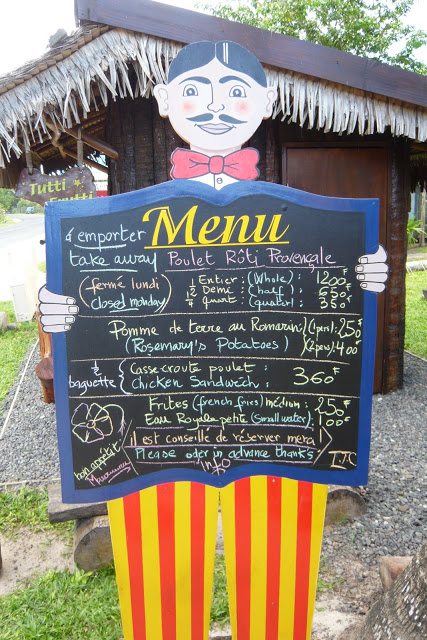 Tutti
Frutti
Menu
à emporter
take away
Poulet Rôti Provençale
(fermé lundi)
closed monday)
1 Entier : (Whole) : 1200F
1/2 Demi : (half) : 650F
1/4 Quart : (quarter) : 350F
Pomme de terre au Romarin : (1 pers) 250F
(Rosemary's Potatoes) (2 pers) 400F
1/2 baguette
Casse croûte poulet :
Chicken Sandwich : 360F
Frites (french fries) médium : 250F
Eau Royale petite (small water) : 100F
il est conseillé de réserver merci !
Please oder in advance thanks
Info
bon appétit
T.T.C